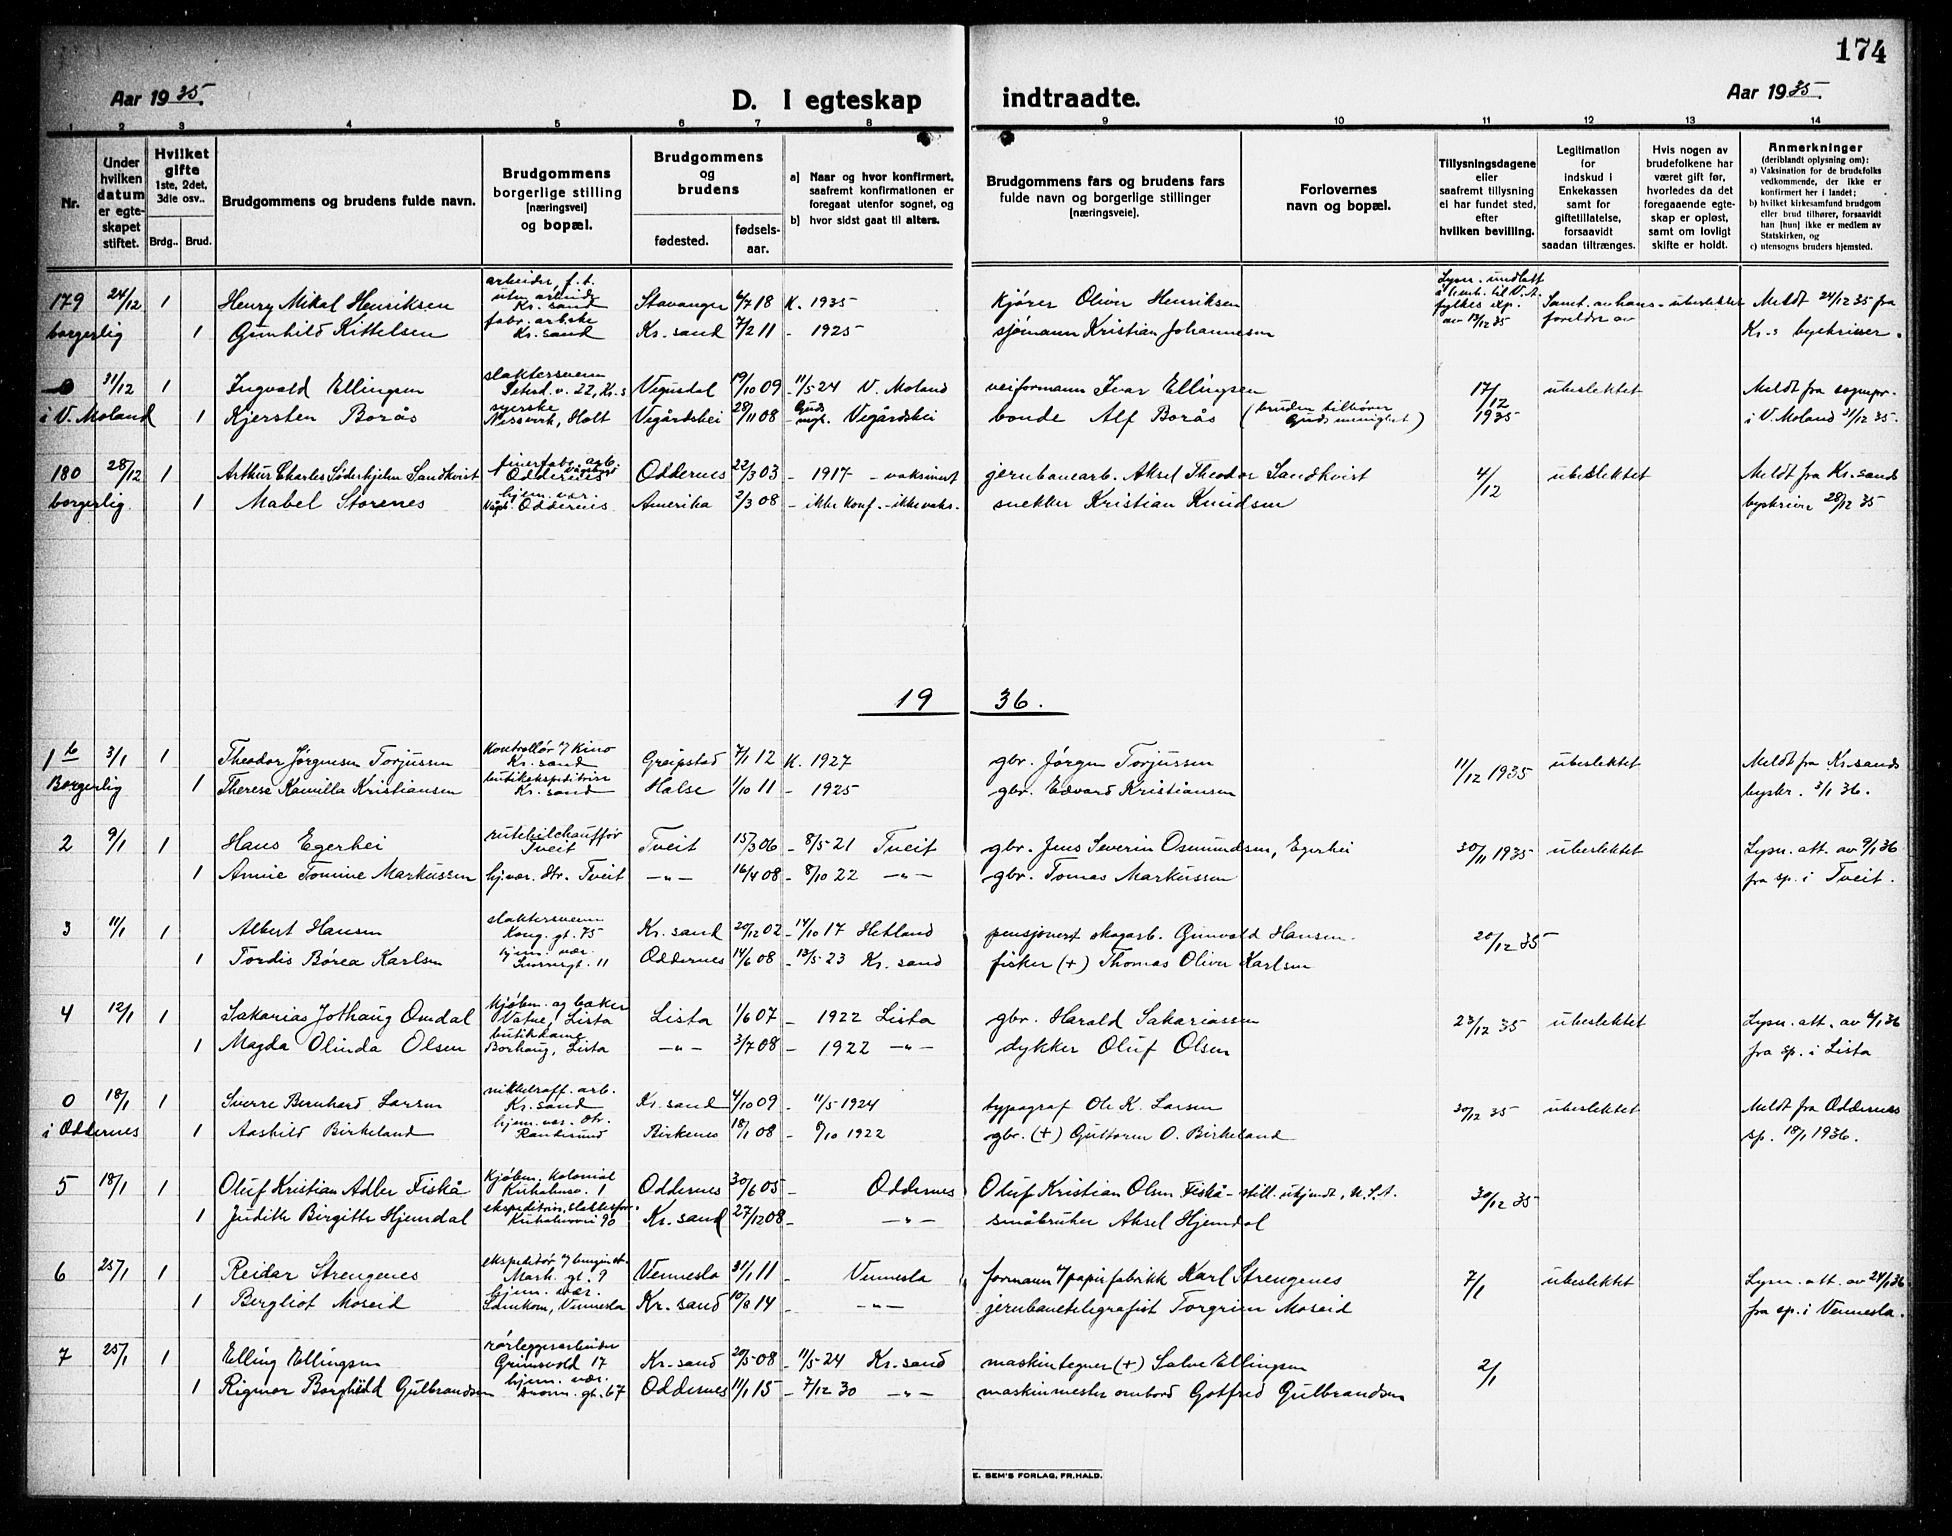 174
Aar 1935.
D. I egteskap indtraadte.
Aar 1935.
1 2 3 4 5 6 7 8 9 10 11 12 13 14
Nr.
Under hvilken datum er egteskapet stiftet.
Hvilket gifte 1ste, 2det, 3die osv..
Brdg.. Brud.
Brudgommens og brudens fulde navn.
Brudgommens borgerlige stilling [næringsvei] og bopæl.
Brudgommens og brudens
fødested.
fødselsaar.
a) Naar og hvor konfirmert, saafremt konfirmationen er foregaat utenfor sognet, og
b) hvor sidst gaat til alters.
Brudgommens fars og brudens fars fulde navn og borgerlige stillinger [næringsveie].
Forlovernes navn og bopæl.
Tillysningsdagene eller saafremt tillysning ei har fundet sted, efter hvilken bevilling.
Legitimation for indskud i Enkekassen samt for giftetillatelse, forsaavidt saadan tiltrænges.
Hvis nogen av brudefolkene har været gift før, hvorledes da det foregaaende egteskap er opløst, samt om lovligt skifte er holdt.
Anmerkninger (deriblandt oplysning om):
a) Vaksination for de brudefolks vedkommende, der ikke er konfirmert her i landet;
b) hvilket kirkesamfund brudgom eller brud tilhører, forsaavidt han [hun] ikke er medlem av Statskirken, og
c) utensogns bruders hjemsted.
179 24/12 1 Henry Mikal Henriksen arbeider, f.t. uten arbeide Kr.sand Stavanger 6/7 18 K. 1935 kjører Oliver Henriksen ubeslektet Meldt 24/12 35 fra
borgerlig 1 Gunhild Kittelsen fabr. arb.ske Kr.sand Kr.sand 7/2 11 - 1925 sjømann Kristian Johannesen av 13/12 35 foreldre Kr.s byskriver.
0 31/12 1 Ingvald Ellingsen slaktersvenn 22, Kr.s Vegusdal 19/10 09 11/5 24 V. Moland veiformann Ivar Ellingsen 17/12 1935 ubeslektet Meldt fra sognepr.
i V. Moland 1 Kjersten Borås syerske Holt Vegårdshei 28/11 08 Vegårdshei bonde Alf Borås (bruden tilhører Guds menighet) i V. Moland 31/12 35.
180 28/12 1 Arthur Charles Söderhjelm Sandkvist Oddernes Oddernes 22/3 03 - 1917 - vaksinert jernbanearb. Aksel Theodor Sandkvist 4/12 ubeslektet Meldt fra Kr.sands
borgerlig. 1 Mabel Storenes hjem. vær. Oddernes Amerika 2/3 08 - ikke konf. - ikke vaks. snekker Kristian Knudsen byskriver 28/12 35
19 36.
1 3/1 1 Theodor Jørgensen Torjussen kontrollør v/ Kino Kr.sand Greipstad 7/1 12 K. 1927 gbr. Jørgen Torjussen 11/12 1935 ubeslektet Meldt fra Kr.sands
Borgerlig 1 Therese Kamilla Kristiansen butikekspeditrise Kr.sand Halse 1/10 11 - 1925 gbr. Edvard Kristiansen byskr. 3/1 36.
2 9/1 1 Hans Egerhei rutebilchauffør Tveit Tveit 15/3 06 - 8/5 21 Tveit gbr. Jens Severin Osmundsen, Egerhei 30/11 1935 ubeslektet Lysn. att. av 9/1 36
1 Annie Tomine Markussen hj.vær. dtr. Tveit -"- 16/4 08 - 8/10 22 -"- gbr. Tomas Markussen fra sp. i Tveit.
3 11/1 1 Albert Hansen slaktersvenn Kong. gt. 75 Kr.sand 20/12 02 - 14/10 17 Hetland pensjonert skogarb. Gunvald Hansen. 20/12 35
1 Tordis Børea Karlsen hjem. vær. 11 Oddernes 14/6 08 - 13/5 23 Kr.sand fisker (+) Thomas Oliver Karlsen
4 12/1 1 Sakarias Jothaug Omdal kjøbm. og baker Vatne, Lista Lista 1/6 07 - 1922 Lista gbr. Harald Sakariassen 23/12 35 ubeslektet Lysn. att. av 6/1 36
1 Magda Olinda Olsen Borhaug, Lista -"- 3/7 08 - 1922 -"- dykker Oluf Olsen fra sp. i Lista
0 18/1 1 Sverre Bernhard Larsen nikkelraff. arb. Kr.sand Kr.sand 4/10 09 - 11/5 1924 typograf Ole K. Larsen 30/12 35 ubeslektet Meldt fra Oddernes
i Oddernes 1 Aashild Birkeland hjem. vær. dtr. Randesund Birkenes 18/1 08 - 8/10 1922 gbr. (+) Guttorm O. Birkeland sp. 18/1 1936.
5 18/1 1 Oluf Kristian Adler Fiskå Kjøbm. kolonial Kuholmsv. 1 Oddernes 30/6 05 - Oddernes Oluf Kristian Olsen Fiskå - still. ukjendt, U.S.A. 30/12 35
1 Judith Birgitte Hjemdal ekspeditrise, slakterfor. Kuholmsvei 90 Kr.sand 27/12 08 - -"- småbruker Aksel Hjemdal
6 25/1 1 Reidar Strengenes ekspeditør Mark. gt. 9 Vennesla 31/1 11 - Vennesla formann v/ papirfabrikk Karl Strengenes 7/1 ubeslektet Lysn. att. av 24/1 36
1 Bergliot Moseid hjem. vær. Vennesla Kr.sand 10/8 14 - -"- jernbanetelegrafist Torgrim Moseid fra sp. i Vennesla.
7 25/1 1 Elling Ellingsen rørleggerarbeider Grimsvold 17 Kr.sand 20/5 08 - 11/5 24 Kr.sand maskintegner (+) Salve Ellingsen 2/1
1 Rigmor Borghild Gulbrandsen hjem. vær. Dronn. gt. 67 Oddernes 11/1 15 - 7/12 30 -"- maskinmester ombord Gotfred Gulbrandsen
E. SEM'S FORLAG, FR.HALD.